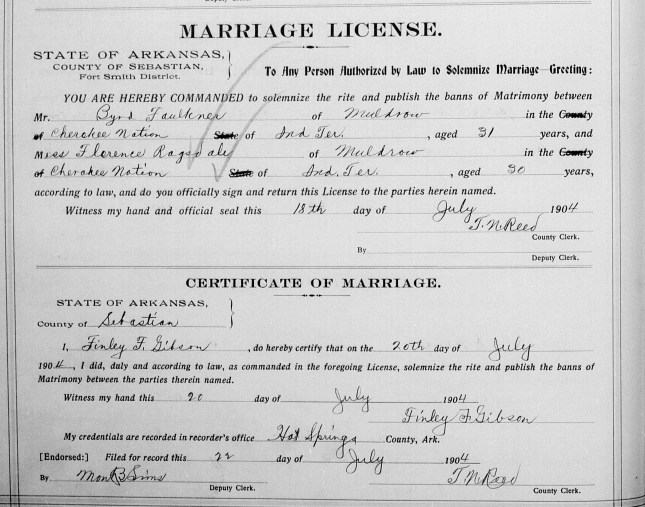 Deputy Clerk.
MARRIAGE LICENSE.
STATE OF ARKANSAS,
COUNTY OF SEBASTIAN,
Fort Smith District.
To Any Person Authorized by Law to Solemnize Marriage—Greeting:
YOU ARE HEREBY COMMANDED to solemnize the rite and publish the banns of Matrimony between
Mr. Byrd Faulkner of Muldrow in the County
of Cherokee Nation State of Ind Ter. , aged 31 years, and
Miss Florence Ragsdale of Muldrow in the County
of Cherokee Nation State of Ind. Ter. , aged 30 years,
according to law, and do you officially sign and return this License to the parties herein named.
Witness my hand and official seal this 18th day of July 1904
T. N. Reed
County Clerk.
By
Deputy Clerk.
CERTIFICATE OF MARRIAGE.
STATE OF ARKANSAS,
County of Sebastian
I, Finley F. Gibson , do hereby certify that on the 20th day of July
1904, I did, duly and according to law, as commanded in the foregoing License, solemnize the rite and publish the banns of
Matrimony between the parties therein named.
Witness my hand this 20 day of July 1904
Finley F. Gibson
My credentials are recorded in recorder's office Hot Springs County, Ark.
[Endorsed:] Filed for record this 22 day of July 1904
By Mont B Sims T. N. Reed
Deputy Clerk. County Clerk.